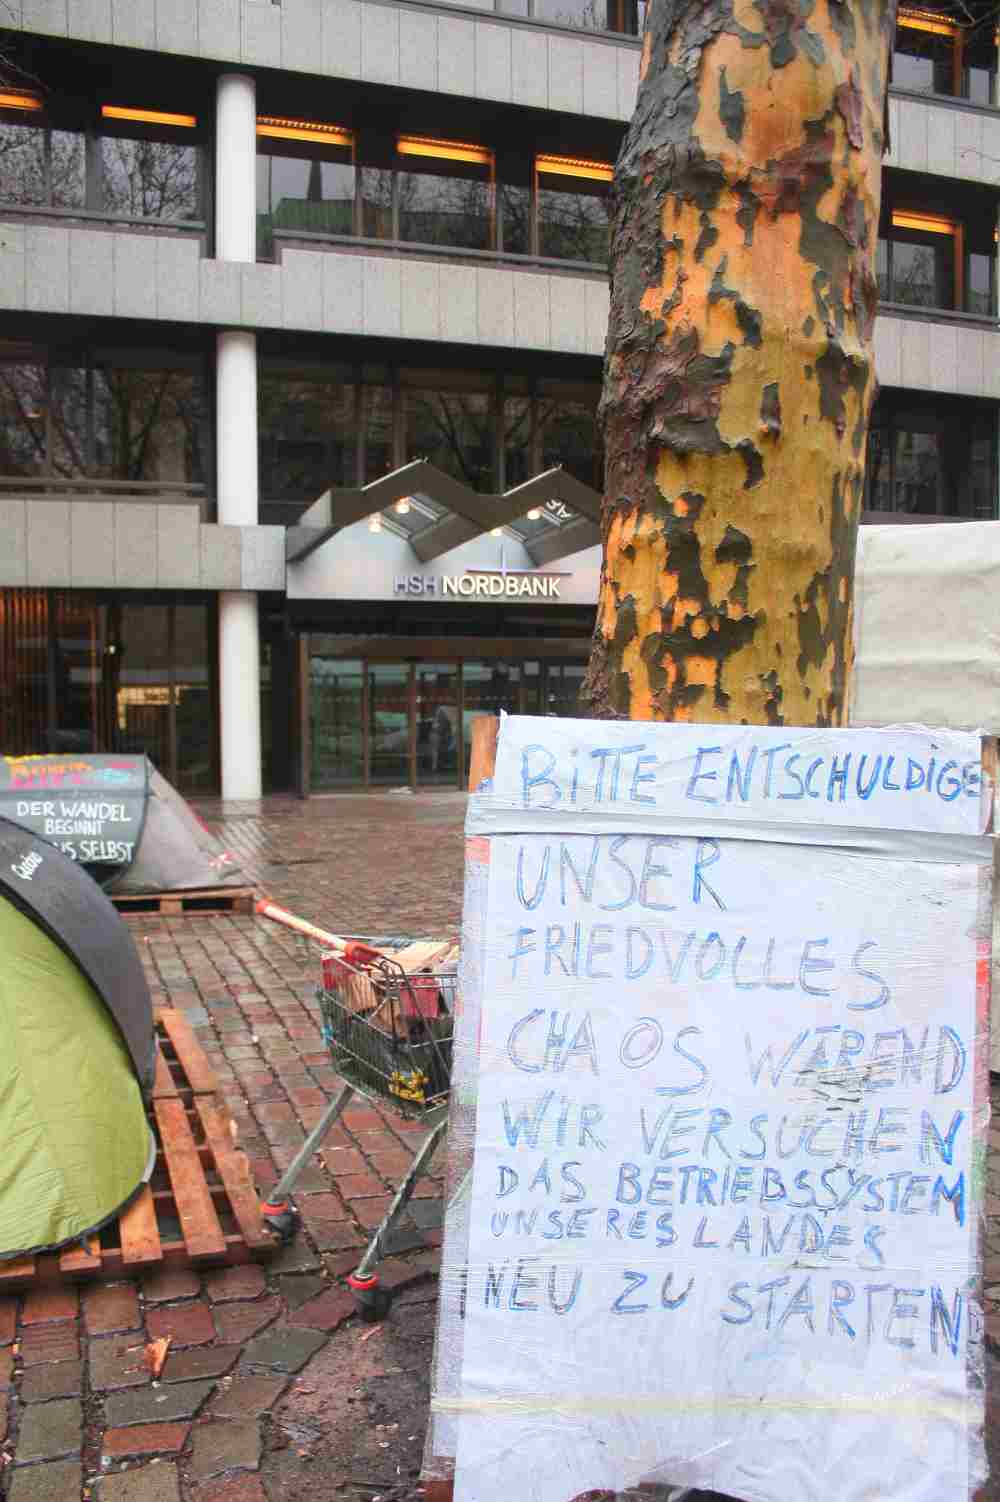 HSH NORDBANK
DER WANDEL
BEGINNT
SELBST
BiTTE ENTSCHULDiGE
UNSER
FRIEDVOLLES
CHAOS WÄREND
WIR VERSUCHEN
DAS BETRIEBSSYSTEM
UNSERES LANDES
NEU ZU STARTEN